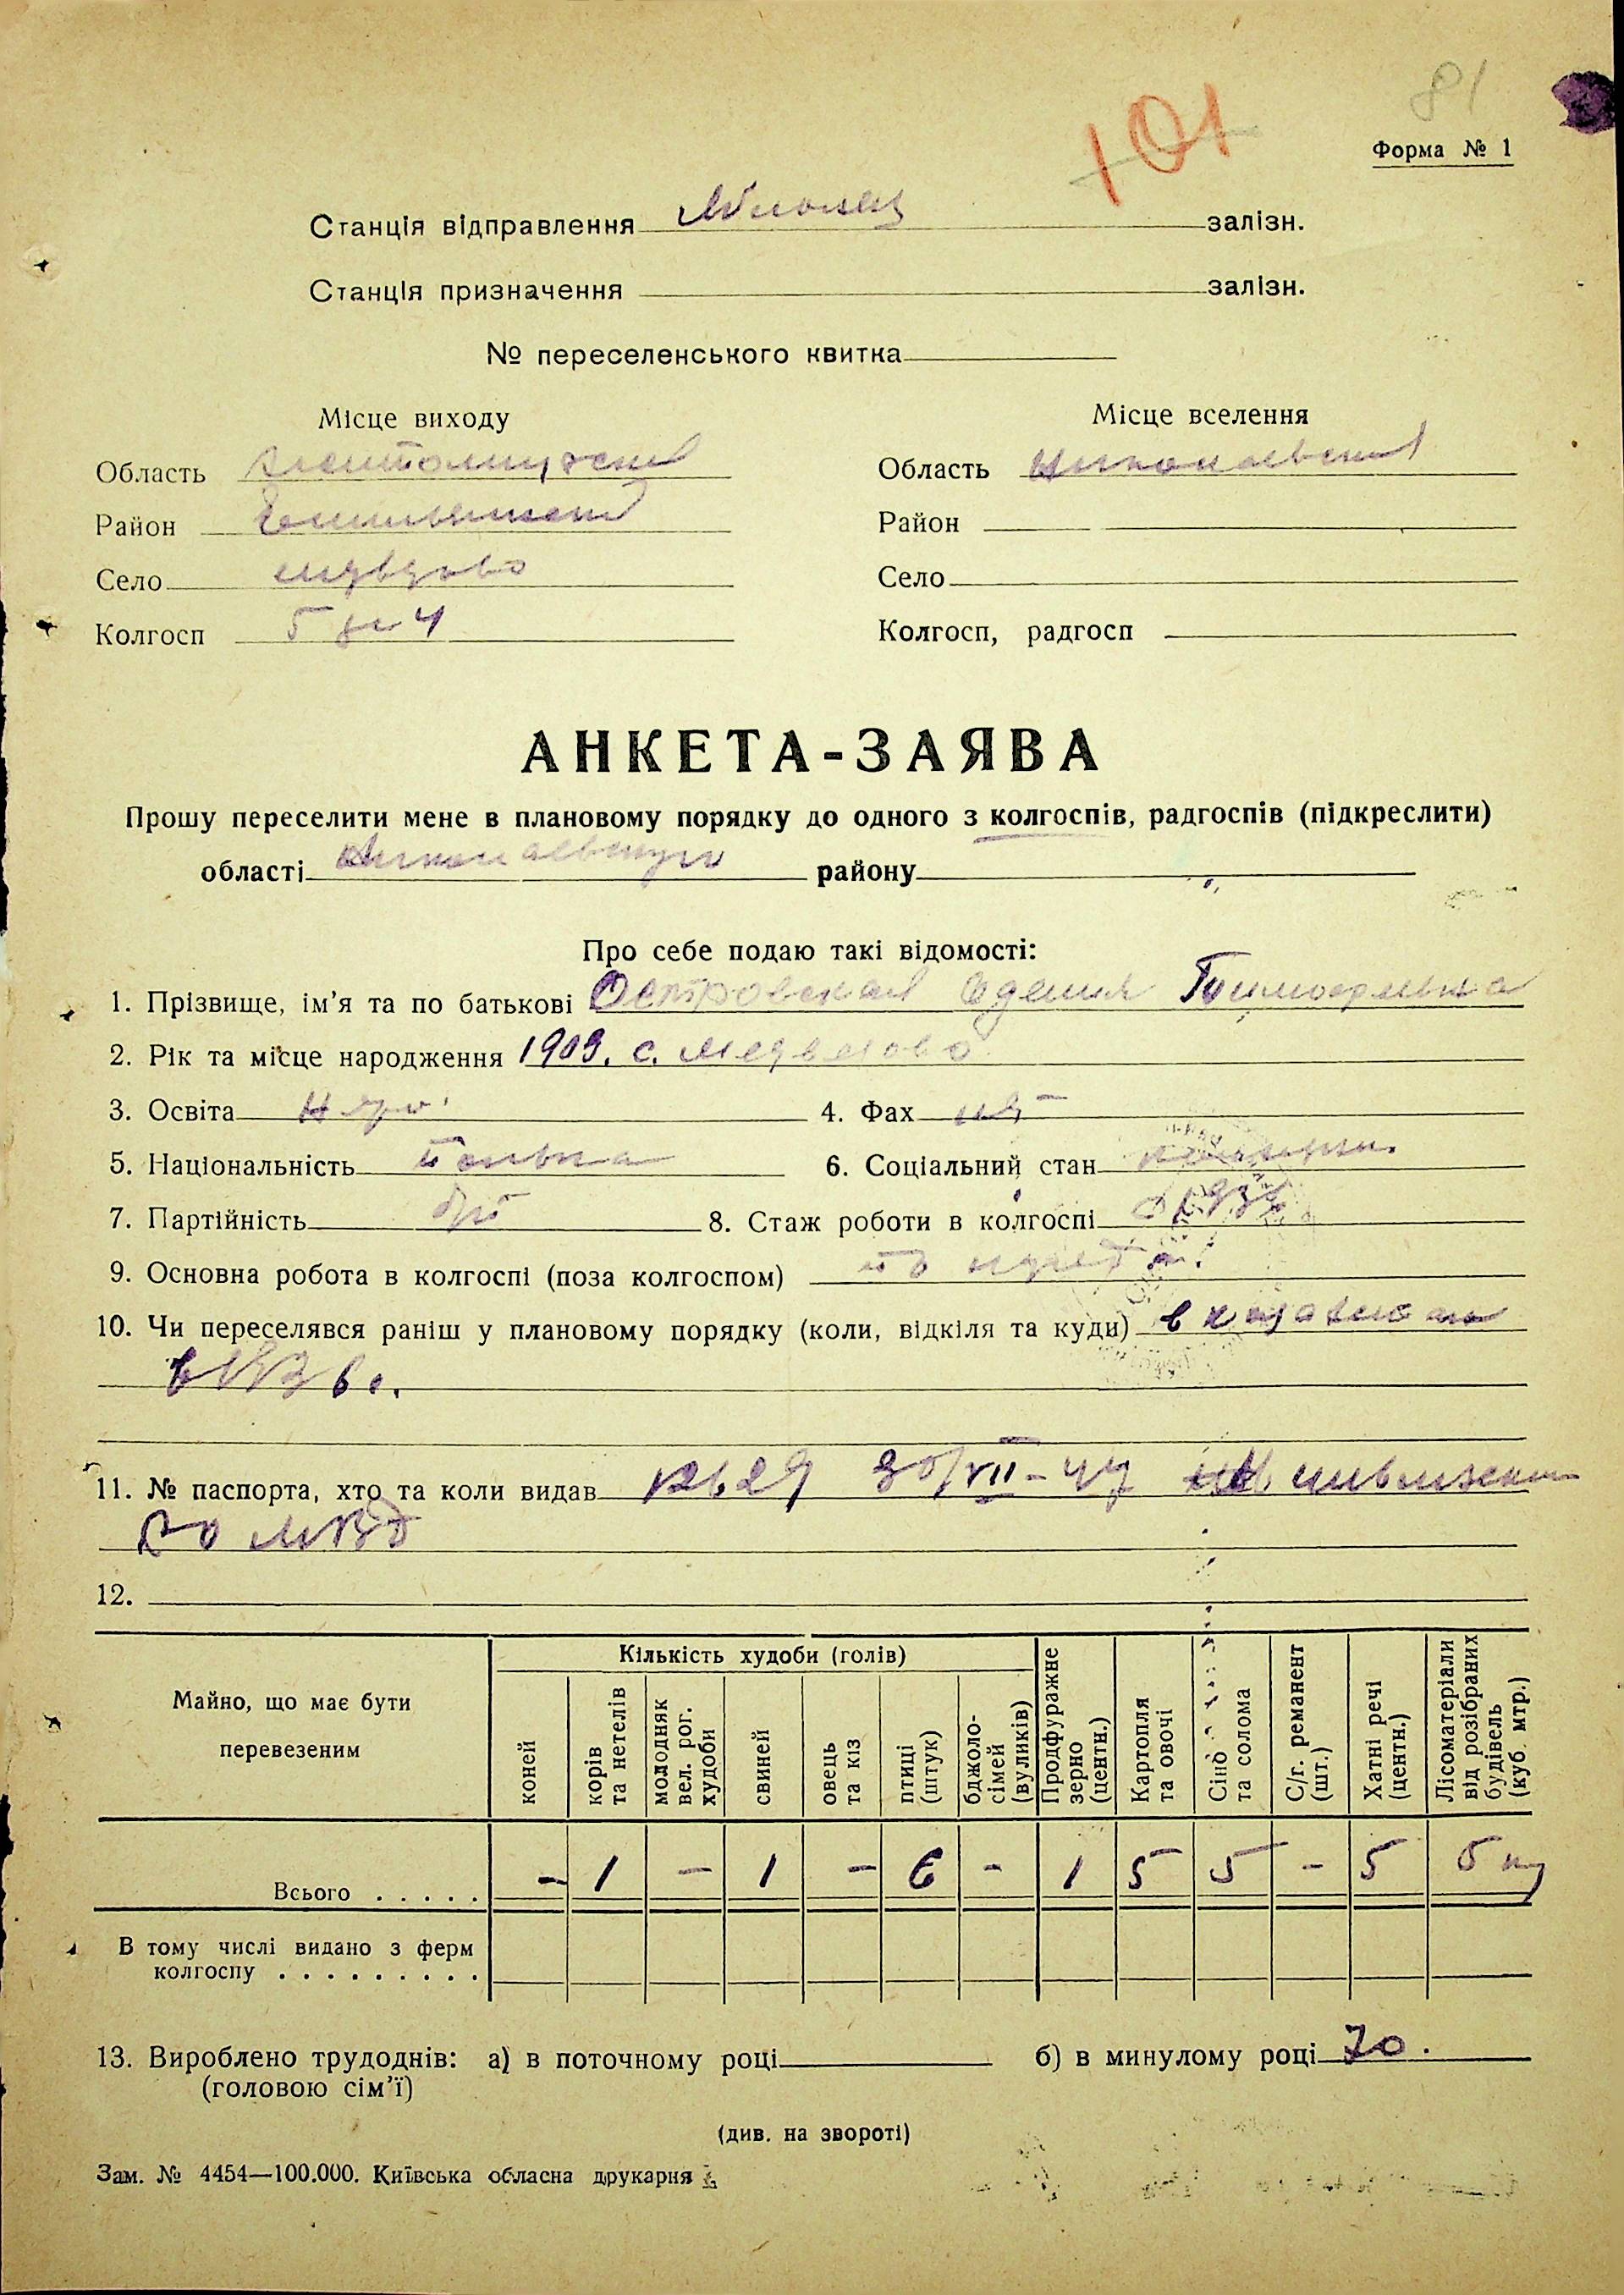 81
101
Форма № 1
Станція відправлення Яблонец залізн.
Станція призначення залізн.
№ переселенського квитка
Місце виходу
Місце вселення
Область Житомирская
Область Николаевская
Район
Район
Село
Село
Колгосп
Колгосп, радгосп
АНКЕТА-ЗАЯВА
Прошу переселити мене в плановому порядку до одного з колгоспів, радгоспів (підкреслити)
області Николаевскую району
Про себе подаю такі відомості:
1. Прізвище, ім'я та по батькові Островская
2. Рік та місце народження 1909. с. Медведово
3. Освіта 4. Фах нет
5. Національність Полька 6. Соціальний стан
7. Партійність б/п 8. Стаж роботи в колгоспі
9. Основна робота в колгоспі (поза колгоспом)
10. Чи переселявся раніш у плановому порядку (коли, відкіля та куди) в
в 1936 г.
11. № паспорта, хто та коли видав
РО МВД
12.
Майно, що має бути перевезеним
Кількість худоби (голів)
коней
корів та нетелів
молодняк вел. рог. худоби
свиней
овець та кіз
птиці (штук)
бджоло-сімей (вуликів)
Продфуражне зерно (центн.)
Картопля та овочі
Сіно та солома
С/г. реманент (шт.)
Хатні речі (центн.)
Лісоматеріали від розібраних будівель (куб. мтр.)
Всього . . . . . - 1 - 1 - 6 - 1 5 5 - 5 5
В тому числі видано з ферм
колгоспу . . . . . . . . .
13. Вироблено трудоднів: а) в поточному році б) в минулому році 70.
(головою сім'ї)
(див. на звороті)
Зам. № 4454—100.000. Київська обласна друкарня